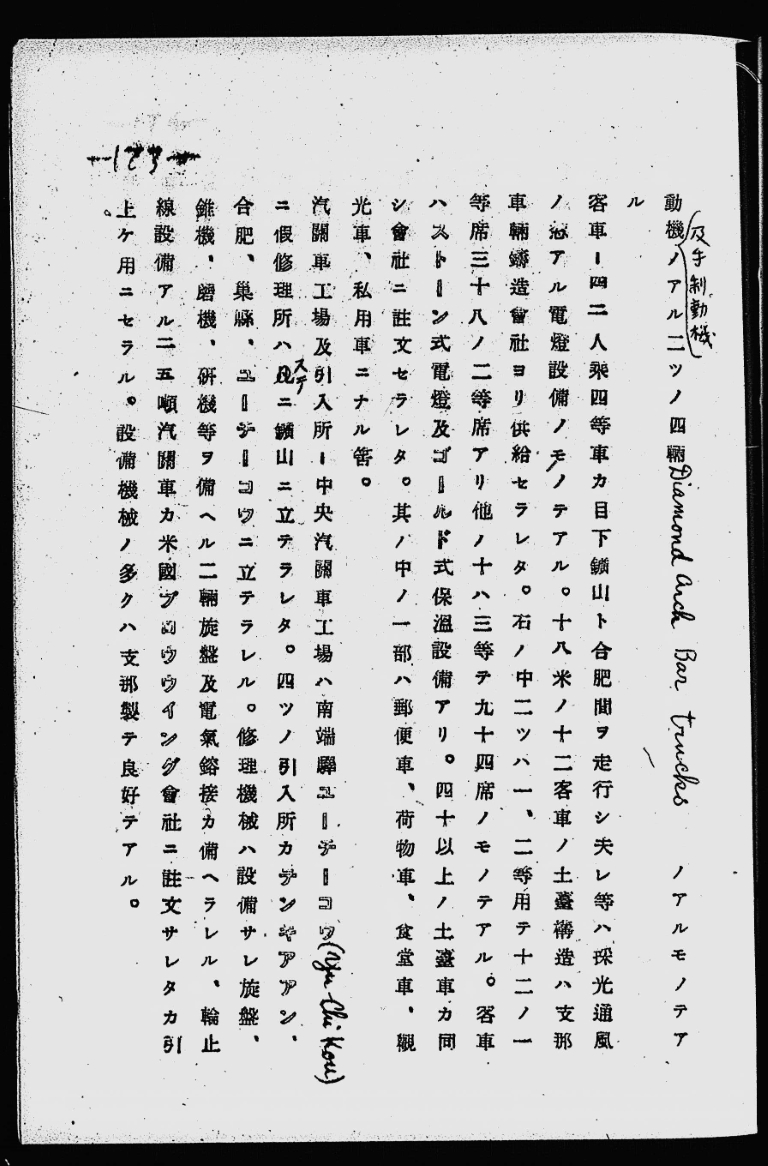 動機ノアル二ツノ四輛Diamond Arch Bar trucksノアルモノテア
及手制動機
ル
客車ー四二人乘四等車カ目下鑛山ト合肥間ヲ走行シ夫レ等ハ採光通風
ノ窓アル電燈設備ノモノテアル。十八米ノ十二客車ノ土臺構造ハ支那
車輛鑄造會社ヨリ供給セラレタ。右ノ中二ツハ一、二等用テ十二ノ一
等席三十八ノ二等席アリ他ノ十ハ三等テ九十四席ノモノテアル。客車
ハストーン式電燈及ゴールド式保溫設備アリ。四十以上ノ土臺車カ同
シ會社ニ註文セラレタ。其ノ中ノ一部ハ郵便車、荷物車、食堂車、觀
光車、私用車ニナル筈。
汽關車工場及引入所ー中央汽關車工場ハ南端驛ユーチーコウ(Yu Chi Kou)
ニ假修理所ハステニ鑛山ニ立テラレタ。四ツノ引入所カテンキアアン、
合肥、巢縣、ユーチーコウニ立テラレル。修理機械ハ設備サレ旋盤、
錐機、磨機、硏機等ヲ備ヘル二輛旋盤及電氣鎔接カ備ヘラレル、輪止
線設備アル二五噸汽關車カ米國ブロウウイング會社ニ註文サレタカ引
上ケ用ニセラル。設備機械ノ多クハ支那製テ良好テアル。
—123—